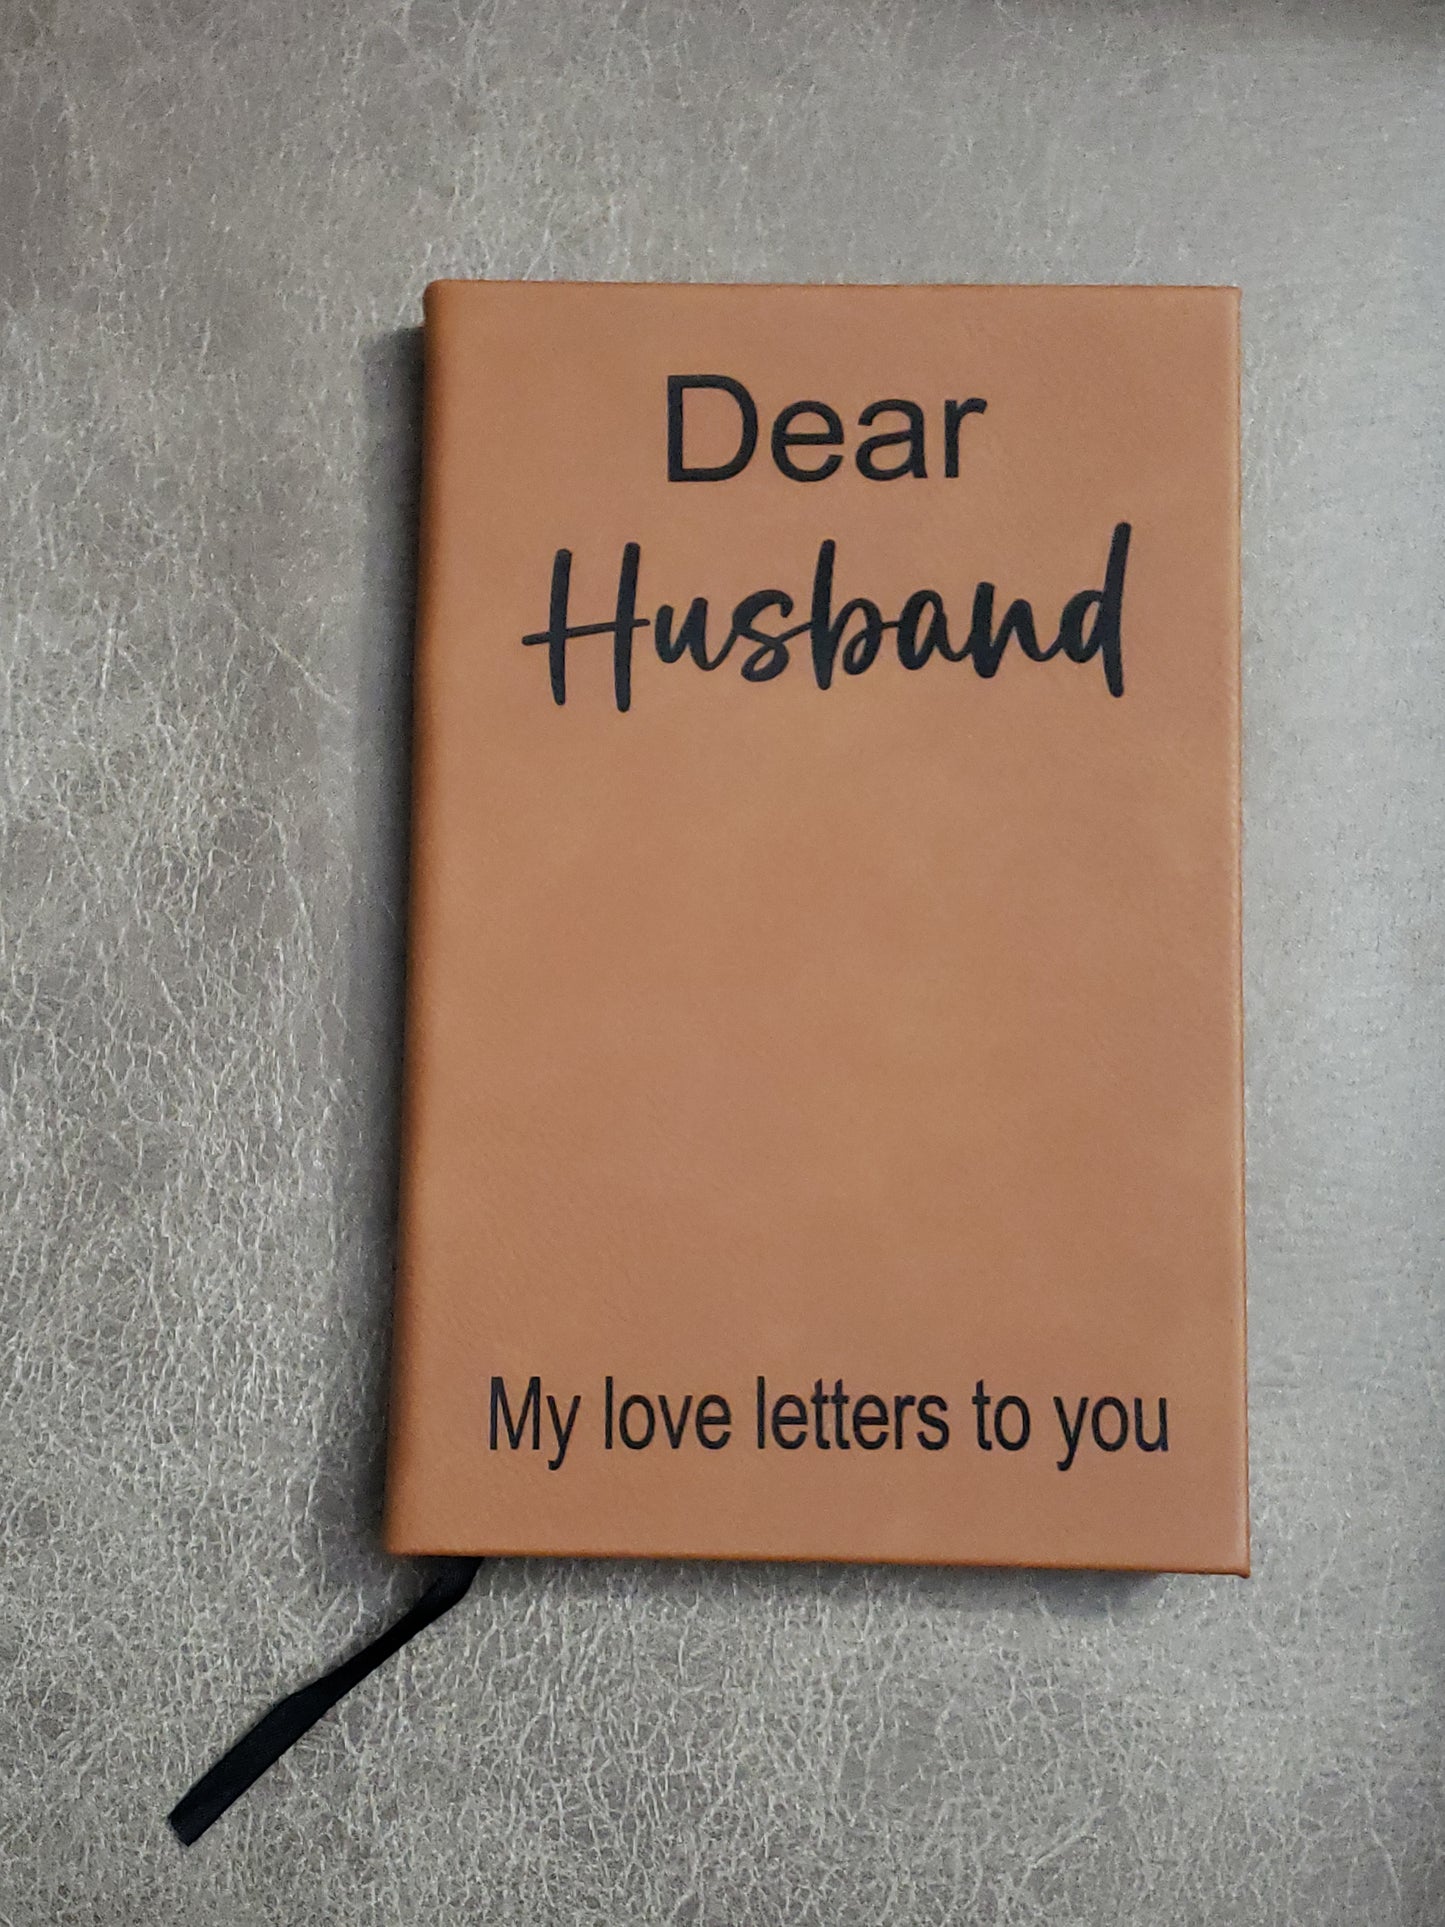 Dear
Husband
My love letters to you